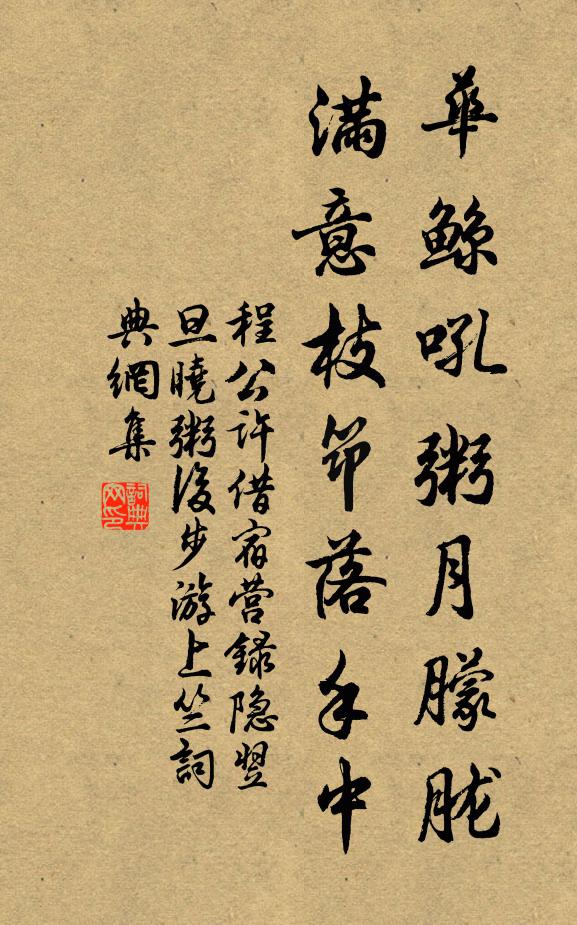 華鯨吼粥月朦胧
滿意枝筇落手中
程公許借宿营録隐翌
旦曉粥後步游上竺詞
典網集
詞典
网印